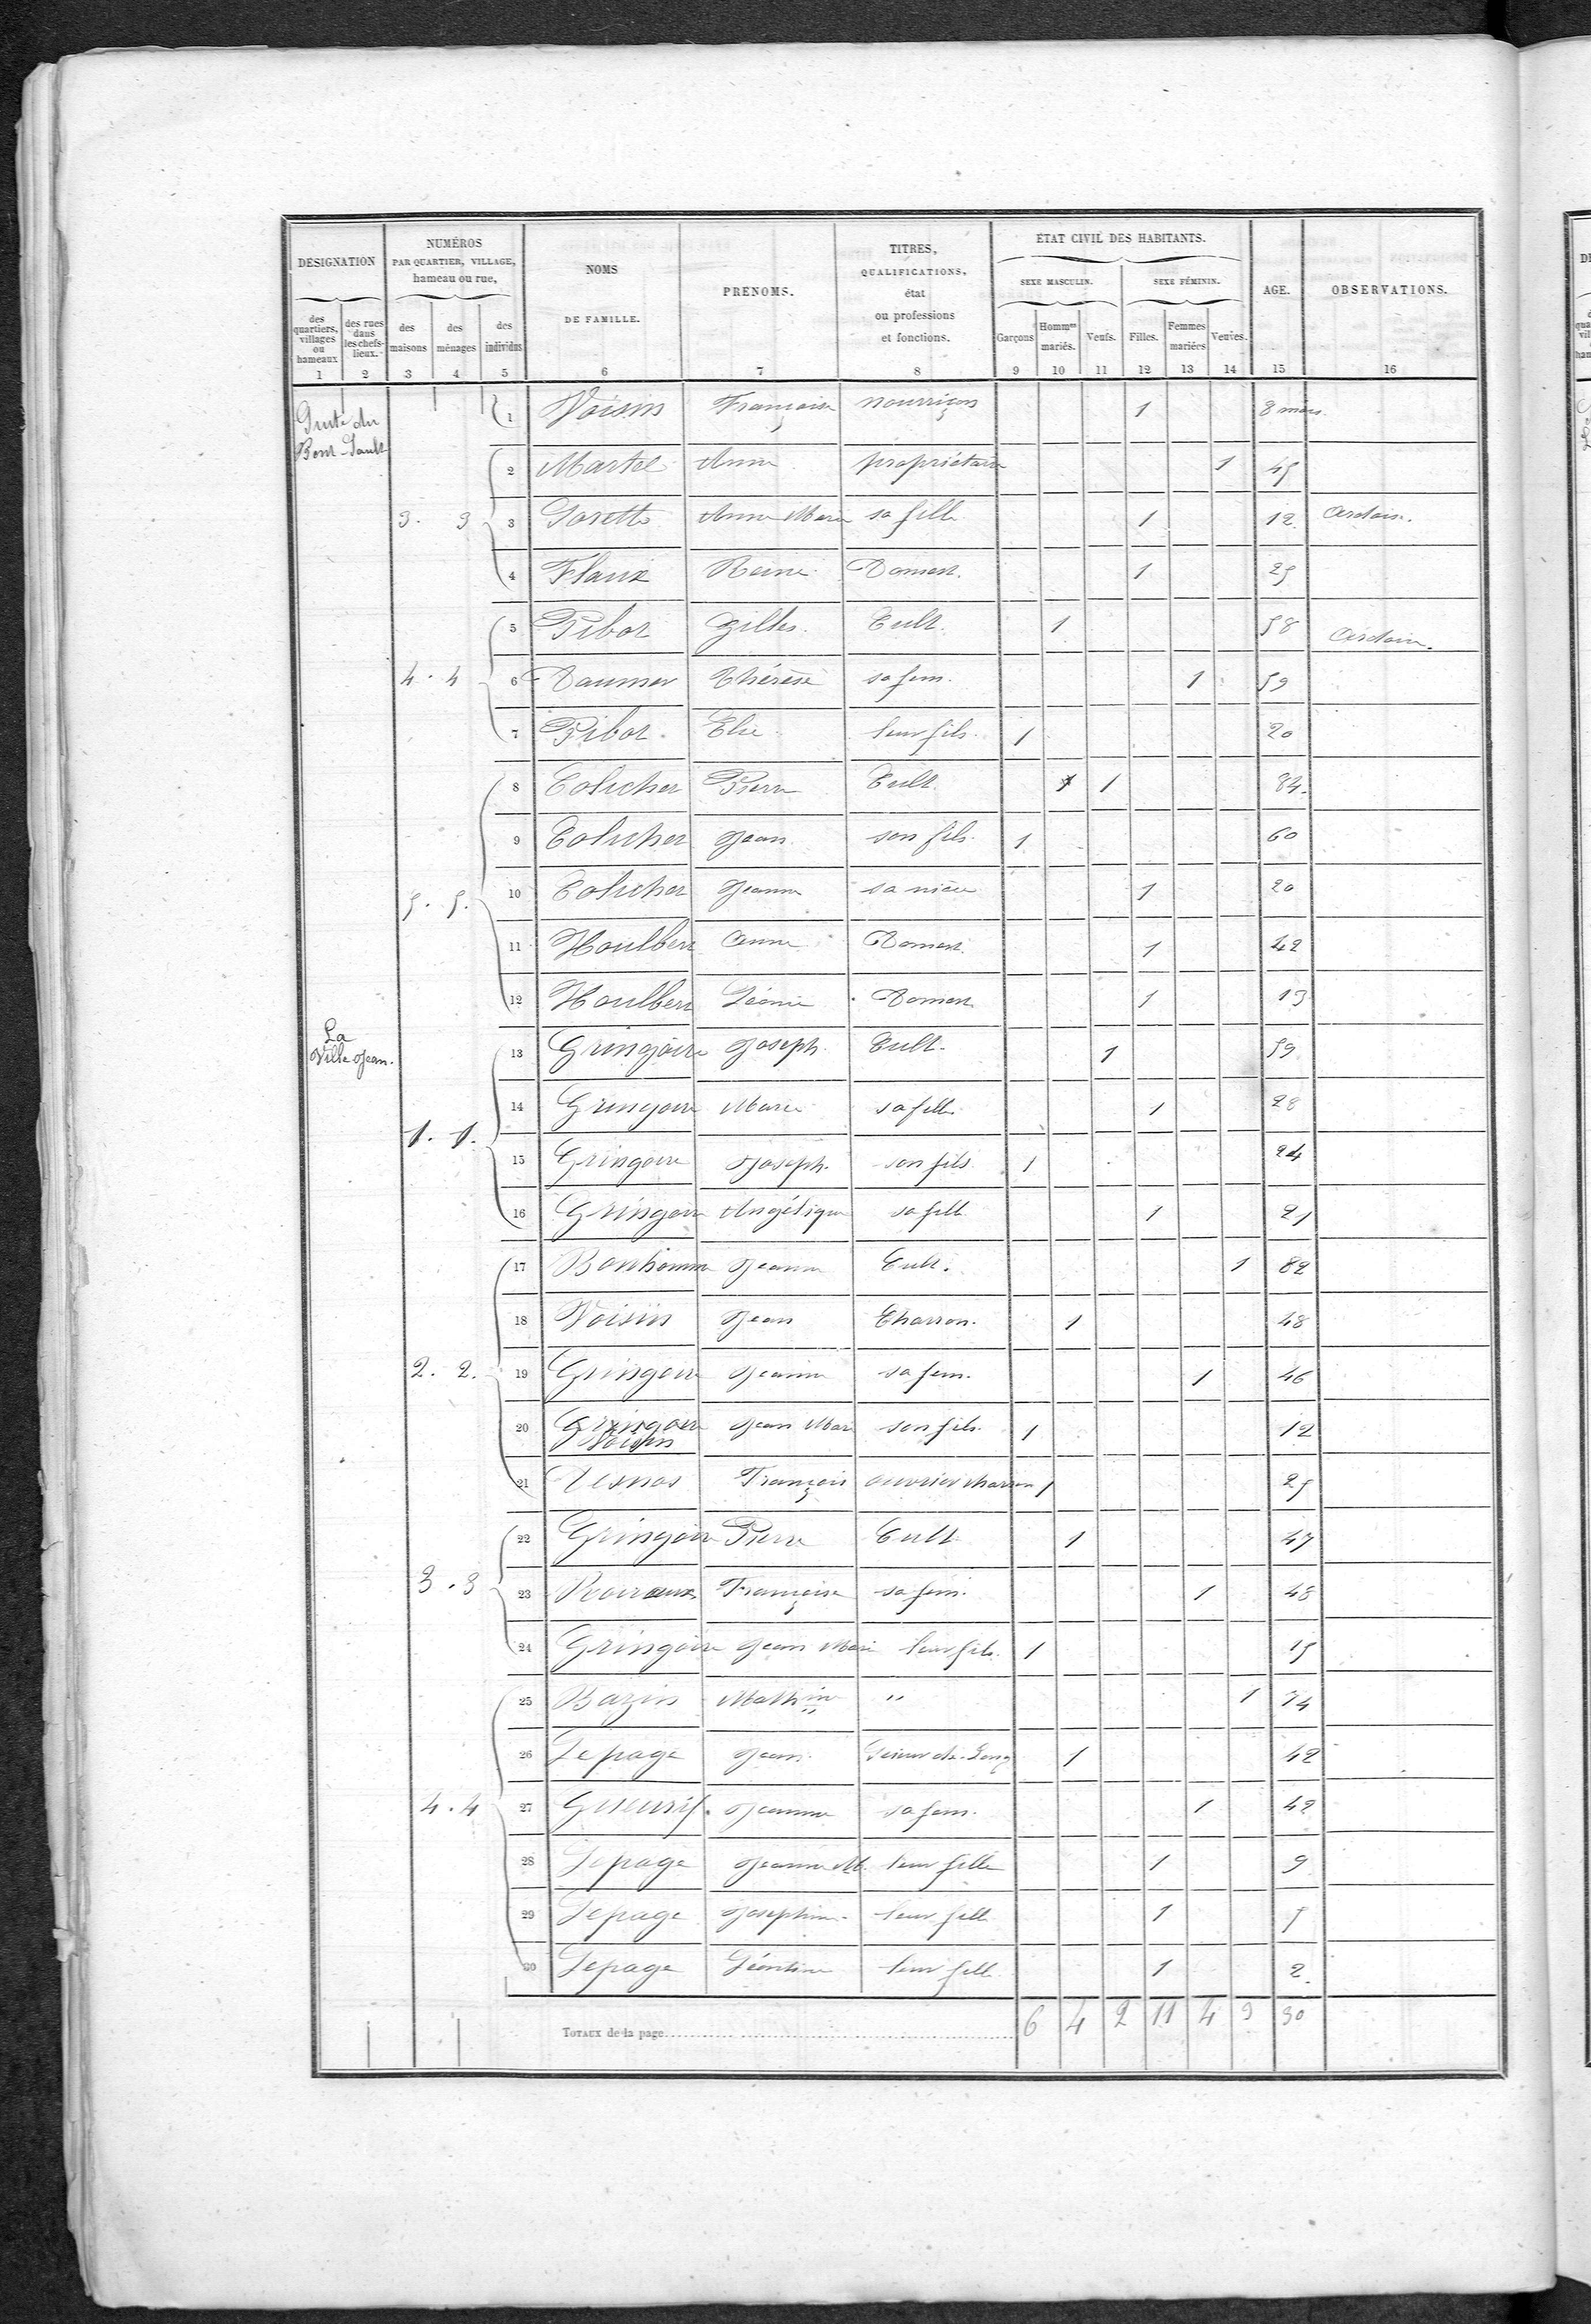 DÉSIGNATION
NUMÉROS
PAR QUARTIER, VILLAGE,
hameau ou rue,
NOMS
DE FAMILLE.
PRÉNOMS.
TITRES,
QUALIFICATIONS,
état
ou professions
et fonctions.
ÉTAT CIVIL DES HABITANTS.
SEXE MASCULIN. SEXE FÉMININ.
AGE.
OBSERVATIONS.
des quartiers, villages ou hameaux
des rues dans les chefs-lieux.
des maisons
des ménages
des individus
Garçons
Hommes mariés.
Veufs.
Filles.
Femmes mariées
Veuves.
1 2 3 4 5 6 7 8 9 10 11 12 13 14 15 16
du
1 Voisin Françoise nourriçon 1 8 mois
2 Martel Anna propriétaire 1 45
3. 3 3 Anne Marie sa fille 1 12
4 Flaux Reine Domest. 1 25
5 Gilles Cult. 1 58
4. 4 6 Daumer Thérèse sa fem. 1 59
7 Elie leur fils 1 20
8 Colicher Pierre Cult. 1 84.
9 Colicher Jean son fils 1 60
5. 5. 10 Colicher Jeanne sa nièce 1 20
11 Houlbert Anne Domest. 1 42
12 Houlbert Léonie Domest. 1 13
La
Ville Jean.
13 Gringoire Joseph Cult. 1 59
14 Gringoire Marie sa fille 1 28
1. 1. 15 Gringoire Joseph. son fils 1 24
16 Gringoire Angélique sa fille 1 21
17 Bonhomme Jeanne Cult. 1 82
18 Voisin Jean Charron. 1 48
2. 2. 19 Gringoire Jeanne sa fem. 1 46
20 Gringoire Jean Marie son fils 1 12
Voisin
21 François ouvrier charron 1 25
22 Gringoire Pierre Cult 1 47
3. 3 23 Françoise sa fem. 1 48
24 Gringoire Jean Marie leur fils. 1 15
25 Bazin Math ine " 1 74
26 Lepage Jean Scieur de Long 1 42
4. 4 27 Jeanne sa fem. 1 42
28 Lepage Jeanne M. leur fille 1 9
29 Lepage Joséphine leur fille 1 5
30 Lepage Léontine leur fille 1 2.
TOTAUX de la page 6 4 2 11 4 3 30